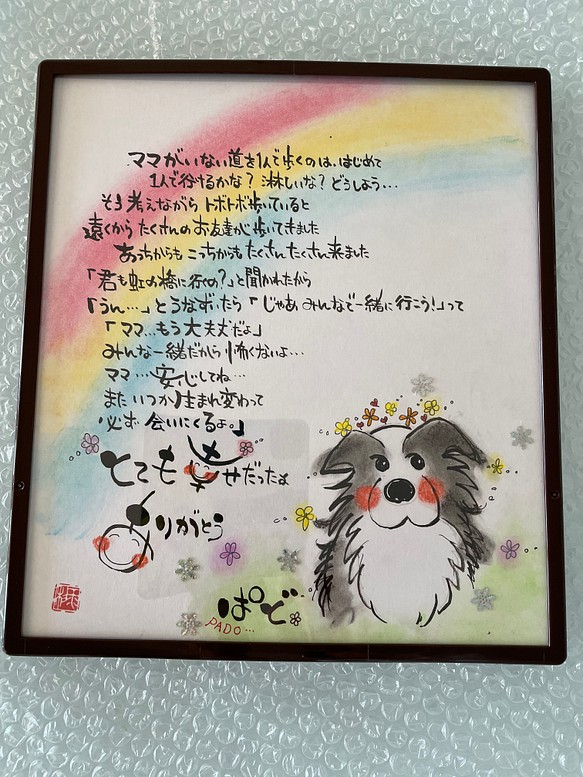 ママがいない道を1人で歩くのは、はじめて
1人で行けるかな？淋しいな？どうしよう…
そう考えながらトボトボ歩いていると
遠くからたくさんのお友達が歩いてきました
あっちからもこっちからもたくさんたくさん来ました
「君も虹の橋に行くの？」と聞かれたから
「うん…」とうなずいたら「じゃあみんなで一緒に行こう！」って
「ママ…もう大丈夫だよ」
みんな一緒だから怖くないよ…
ママ…安心してね…
またいつか生まれ変わって
必ず会いにくるよ。」
とても幸せだったよ
ありがとう
ぱど
PADO…